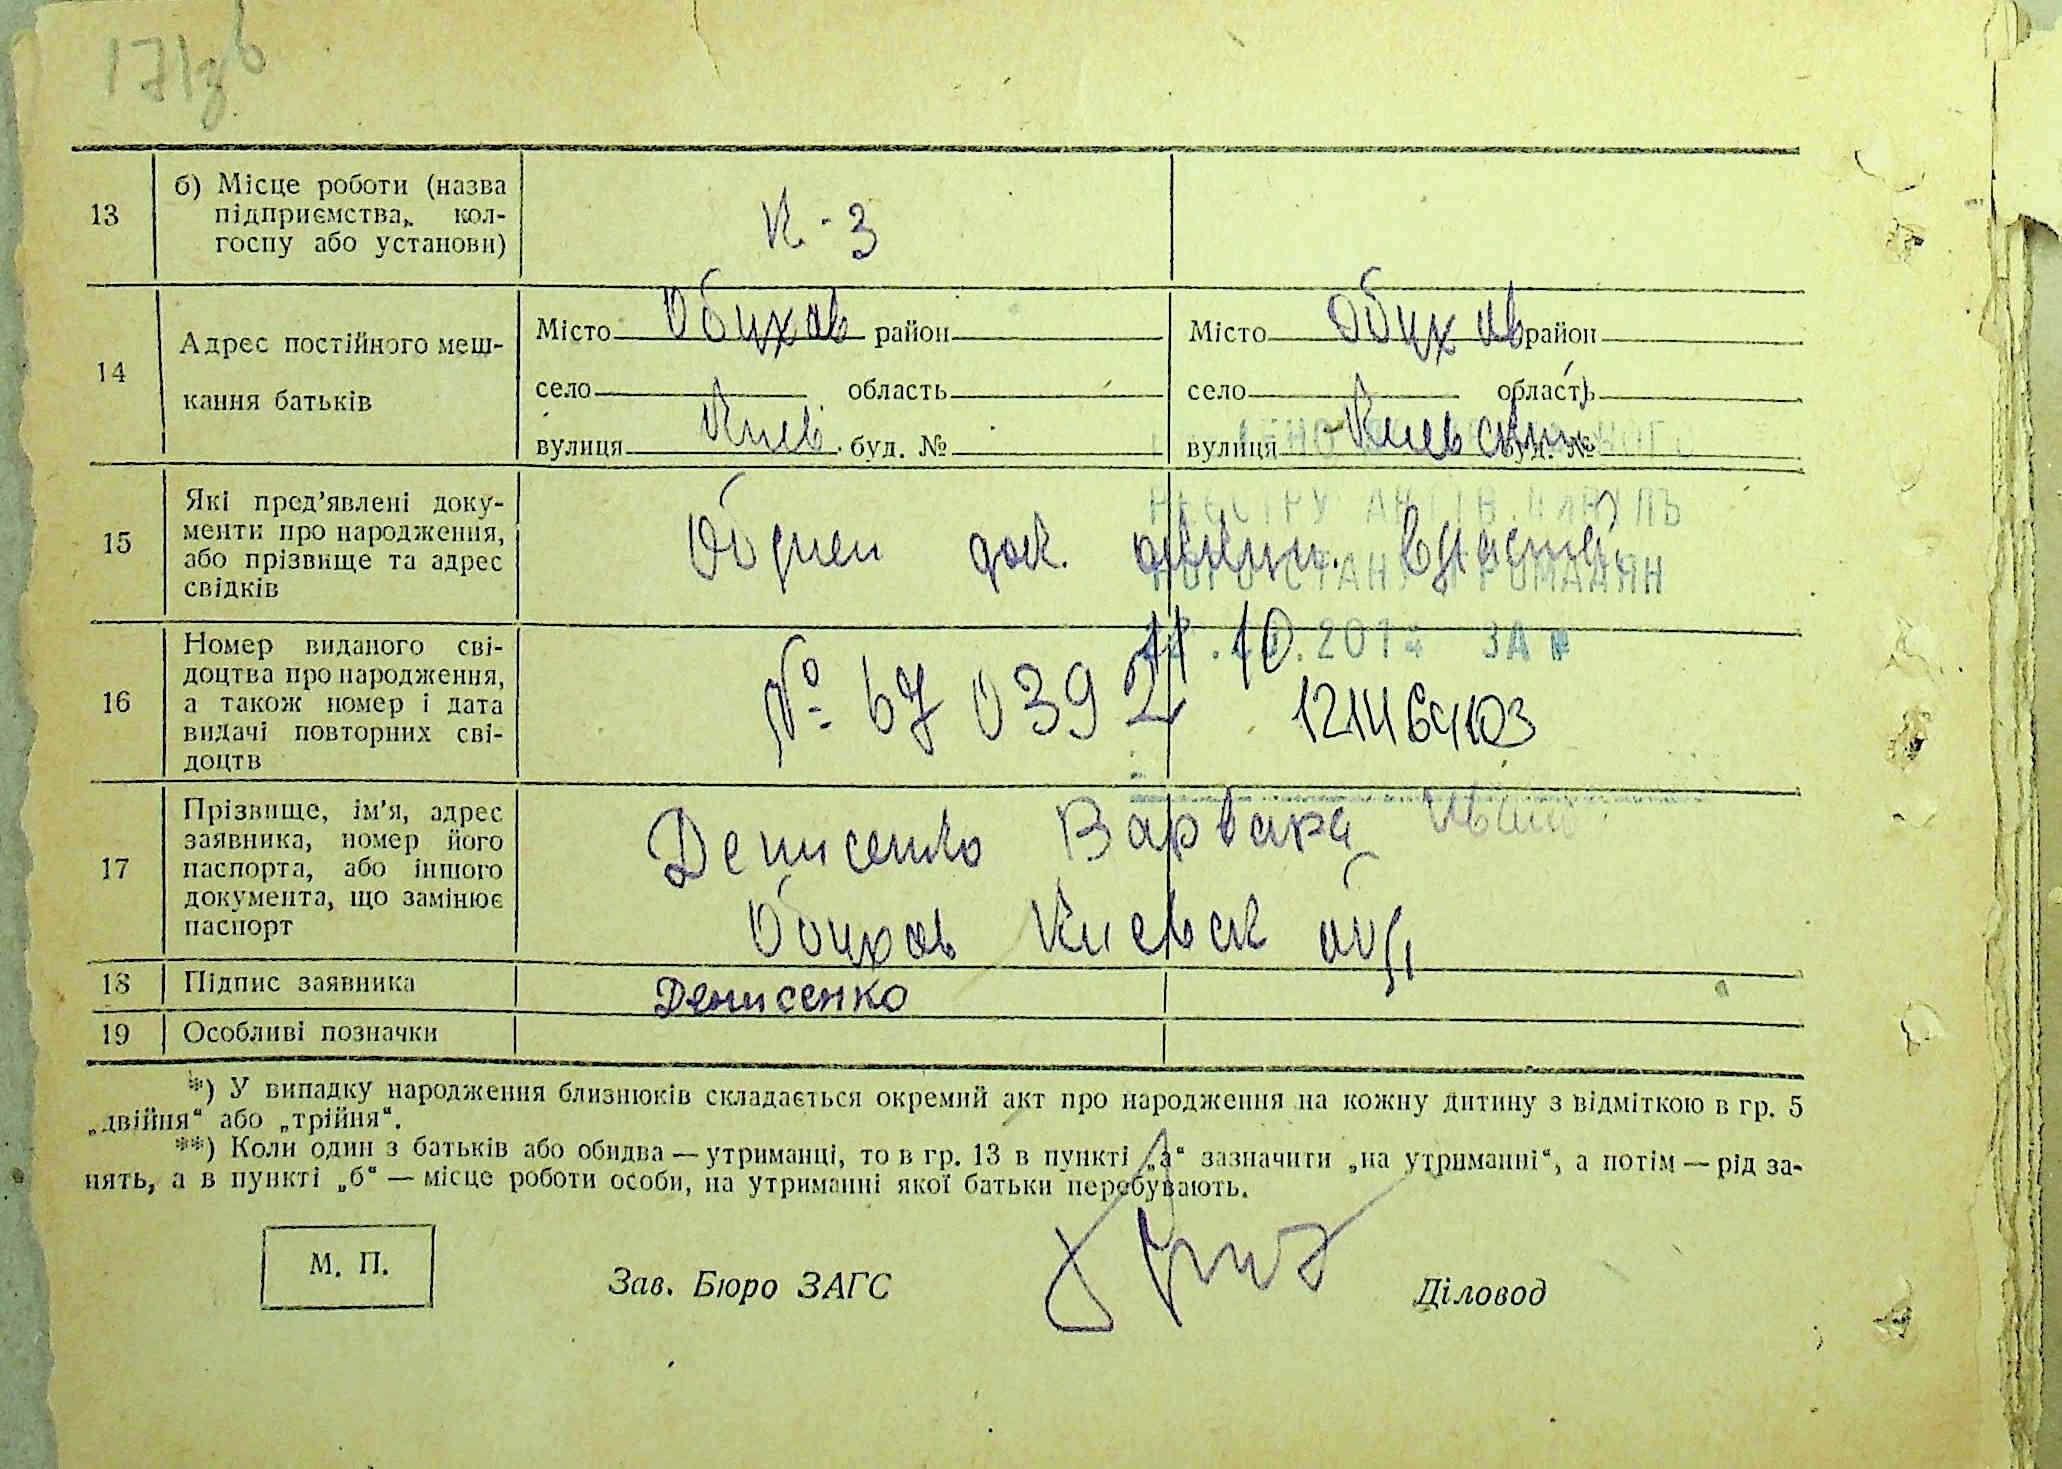 171зв
13
б) Місце роботи (назва
підприємства, кол-
госпу або установи)
К-3
14
Адрес постійного меш-
кання батьків
Місто Обухов район
село область
вулиця Киев. буд. №
Місто Обухов район
село область
вулиця Киевск буд. №
15
Які пред'явлені доку-
менти про народження,
або прізвище та адрес
свідків
док.
РЕЄСТРУ АКТІВ ЦИВІЛЬ
НОГО СТАНУ ГРОМАДЯН
11.10.201 ЗА №
16
Номер виданого сві-
доцтва про народження,
а також номер і дата
видачі повторних сві-
доцтв
№ 670392
17
Прізвище, ім'я, адрес
заявника, номер його
паспорта, або іншого
документа, що замінює
паспорт
Денисенко Варвара Иван
Обухов Киевск обл
18
Підпис заявника
Денисенко
19
Особливі позначки
*) У випадку народження близнюків складається окремий акт про народження на кожну дитину з відміткою в гр. 5
„двійня“ або „трійня“.
**) Коли один з батьків або обидва — утриманці, то в гр. 13 в пункті „а“ зазначити „на утриманні“, а потім — рід за-
нять, а в пункті „б“ — місце роботи особи, на утриманні якої батьки перебувають.
М. П.
Зав. Бюро ЗАГС
Діловод